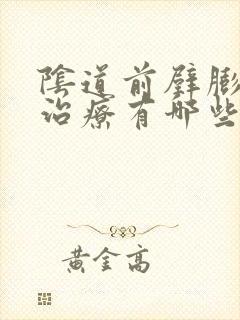 陰道前壁膨
治療有哪些
黃金高